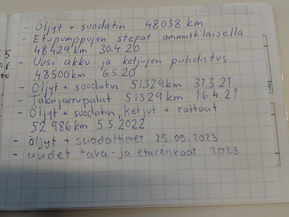 - Öljyt + suodatin 48038 km
- Etupumppujen stepat ammattilaisella
48429 km 30.4.20
- Uusi akku ja ketjujen puhdistus
48500 km 6.5.20
- Öljyt + suodatin 51329 km 31.3.21
- Takajarrupalat 51329 km 16.4.21
- Öljyt + suodatin, ketjut + rattaat
52 986 km 5.5.2022
- öljyt + suodattimet 25.09.2023
- uudet taka- ja eturenkaat 2023